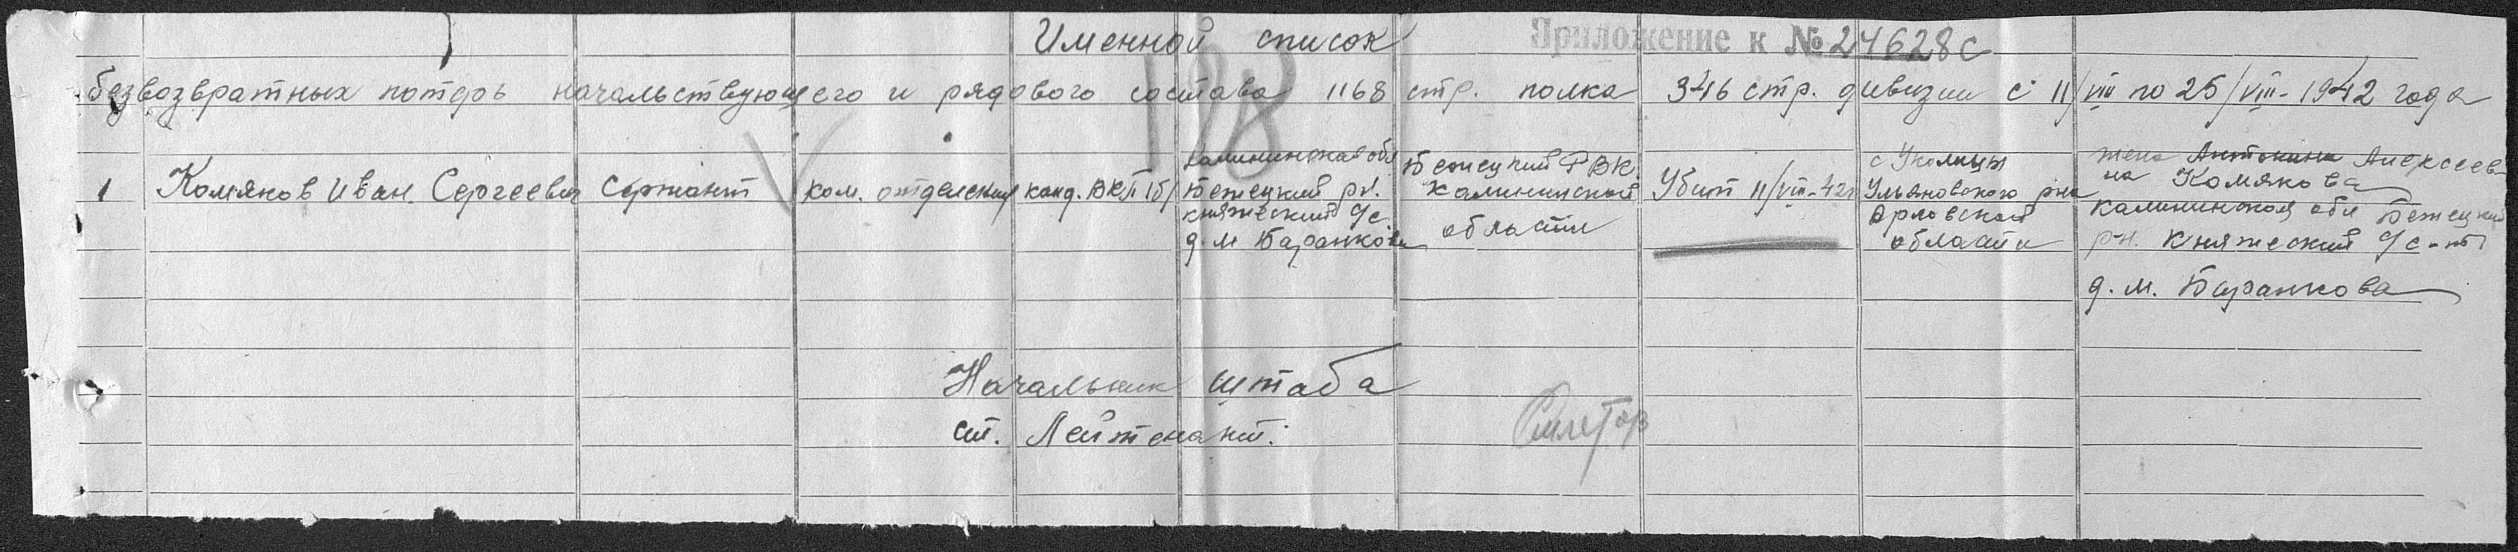 Именной список Приложение к № 24628с
198
безвозвратных потерь начальствующего и рядового состава 1168 стр. полка 346 стр. дивизии с 11/VIII по 25/VIII-1942 года
1 Комяков Иван Сергеевич сержант ком. отделения канд. ВКП(б)
Калининская обл
Бежецкий рн.
Княжеский с/с
д. М Баранково
Бежецкий РВК.
Калининской
области
Убит 11/VIII-42г
с Уколицы
Ульяновского рна
Орловской
области
жена Антонина Алексеев-
на Комякова
Калининская обл Бежецкий
р-н. Княжеский с/с-т
д. М. Баранкова
Начальник штаба
ст. Лейтенант: